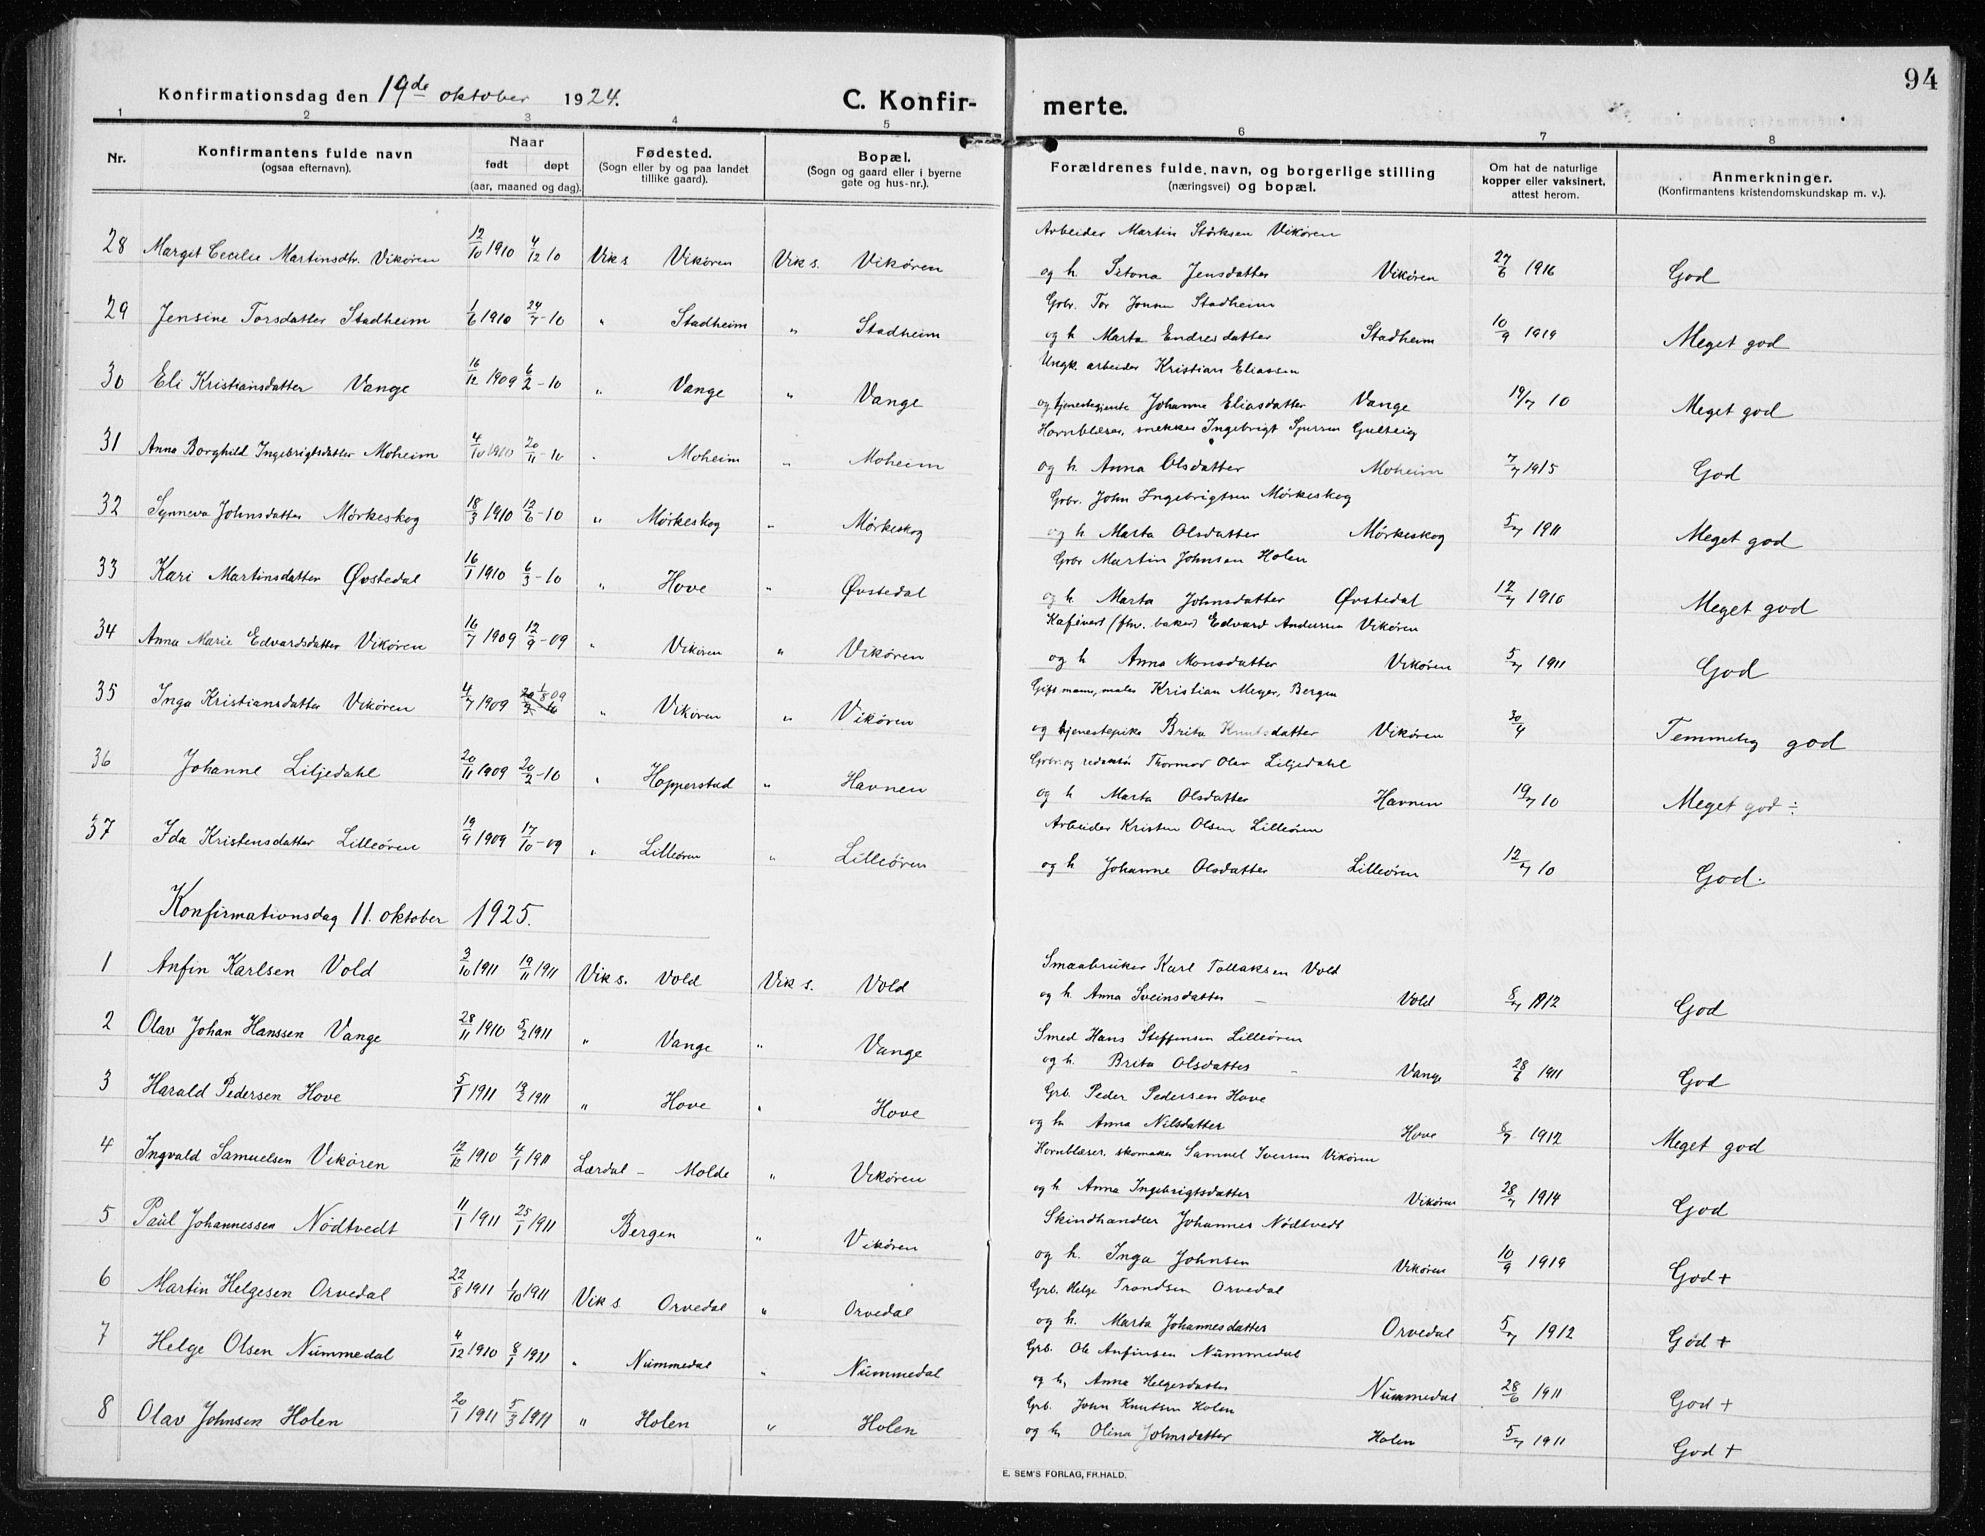 94
Konfirmationsdag den 19de oktober 1924.
C. Konfir- merte.
1 2 3 4 5 6 7 8
Nr.
Konfirmantens fulde navn
(ogsaa efternavn).
Naar
født døpt
(aar, maaned og dag).
Fødested.
(Sogn eller by og paa landet
tillike gaard).
Bopæl.
(Sogn og gaard eller i byerne
gate og hus-nr.).
Forældrenes fulde navn, og borgerlige stilling
(næringsvei) og bopæl.
Om hat de naturlige
kopper eller vaksinert,
attest herom.
Anmerkninger.
(Konfirmantens kristendomskundskap m. v.).
Arbeider Martin Størksen Vikøren
28 Margit Cecilie Martinsdtr. Vikøren 12/10 1910 4/12 10 Viks Vikøren Viks. Vikøren og h. Jensdatter Vikøren 27/6 1916 God
Grbr. Tor Jonsen Stadheim
29 Jensine Torsdatter Stadheim 1/6 1910 24/7 - 10 " Stadheim " Stadheim og h Marta Endresdatter Stadheim 10/9 1919 Meget god
Ungk. arbeider Kristian Eliassen
30 Eli Kristiansdatter Vange 16/12 1909 6/2 - 10 " Vange " Vange og tjenestejente Johanne Eliasdatter Vange 19/7 10 Meget god
Hornblæser, snekker Ingebrigt
31 Anna Borghild Ingebrigtsdatter Moheim 4/10 1910 20/11 - 10 " Moheim " Moheim og h. Anna Olsdatter Moheim 7/7 1915 God
Grbr. John Ingebrigtsen Mørkeskog
32 Synneva Johnsdatter Mørkeskog 18/3 1910 12/6 - 10 " Mørkeskog " Mørkeskog og h. Marta Olsdatter Mørkeskog 5/7 1911 Meget god
Grbr Martin Johnsen Holen
33 Kari Martinsdatter Øvstedal 16/1 1910 6/3 - 10 " Hove " Øvstedal og h. Marta Johnsdatter Øvstedal 12/7 1910 Meget god
Kafévert (fhv. baker) Edvard Andersen Vikøren
34 Anna Marie Edvardsdatter Vikøren 16/7 1909 12/9 - 09 " Vikøren " Vikøren og h Anna Monsdatter Vikøren 5/7 1911 God
Gift mann, maler Kristian Meyer, Bergen
35 Inga Kristiansdatter Vikøren 4/7 1909 1/8 09 " Vikøren " Vikøren og tjenestepike Brita Knutsdatter Vikøren 30/4 Temmelig god
Grbr. og redaktør Thormod Olav Liljedahl
36 Johanne Liljedahl 20/11 1909 20/2 - 10 " Hopperstad " Havnen og h Marta Olsdatter Havnen 19/7 10 Meget god ÷
Arbeider Kristen Olsen Lilleøren
37 Ida Kristensdatter Lilleøren 19/9 1909 17/10 - 09 " Lilleøren " Lilleøren og h Johanne Olsdatter Lilleøren 12/7 10 God.
Konfirmationsdag 11. oktober 1925.
Smaabruker Karl Tollaksen Vold
1 Anfin Karlsen Vold 3/10 1911 19/11 1911 Viks. Vold Viks. Vold og h. Anna Sveinsdatter – Vold 8/7 1912 God
Smed Hans Steffensen Lilleøren
2 Olav Johan Hanssen Vange 28/11 1910 5/2 1911 " Vange " Vange og h. Brita Olsdatter – Vange 28/6 1911 God
Grb. Peder Pedersen Hove
3 Harald Pedersen Hove 5/1 1911 19/2 1911 " Hove " Hove og h. Anna Nilsdatter Hove 8/7 1912 Meget god
Hornblæser, skomaker Samuel Iversen Vikøren
4 Ingvald Samuelsen Vikøren 12/12 1910 4/1 1911 Lærdal – Molde " Vikøren og h. Anna Ingebrigtsdatter Vikøren 28/7 1914 God
Skindhandler Johannes Nødtvedt
5 Paul Johannessen Nødtvedt 11/1 1911 25/1 1911 Bergen " Vikøren og h. Inga Johnsen Vikøren 10/9 1919 God +
Grb. Helge Trondsen Orvedal
6 Martin Helgesen Orvedal 22/8 1911 1/10 1911 Viks Orvedal " Orvedal og h. Marta Johannesdatter Orvedal 5/7 1912 God +
Grb. Ole Anfinsen Nummedal
7 Helge Olsen Nummedal 4/12 1910 8/1 1911 " Nummedal " Nummedal og h, Anna Helgesdatter Nummedal 28/6 1911 God +
Grb. John Knutsen Holen
8 Olav Johnsen Holen 20/1 1911 5/3 1911 " Holen " Holen og h. Olina Johnsdatter Holen 5/7 1911 God +
E. SEM'S FORLAG, FR.HALD.